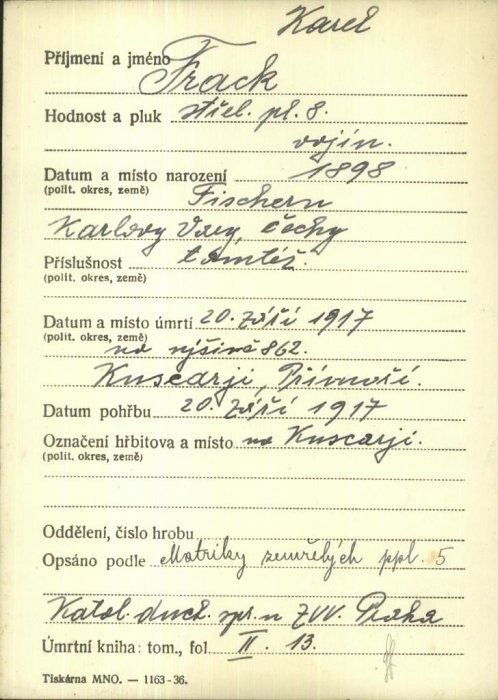 Karel
Příjmení a jméno Frack
Hodnost a pluk střel. pl. 8.
vojín.
Datum a místo narození 1898
(polit. okres, země) Fischern
Karlovy Vary, Čechy
Příslušnost tamtéž.
(polit. okres, země)
Datum a místo úmrtí 20. září 1917
(polit. okres, země) na výšině 862.
Kuscarji, Přímoří.
Datum pohřbu 20. září 1917
Označení hřbitova a místo na Kuscarji.
(polit. okres, země)
Oddělení, číslo hrobu
Opsáno podle Matriky zemřelých ppl. 5
Katol. duch. spr. u ZVV. Praha
Úmrtní kniha: tom., fol. II. 13.
Tiskárna MNO. — 1163-36.